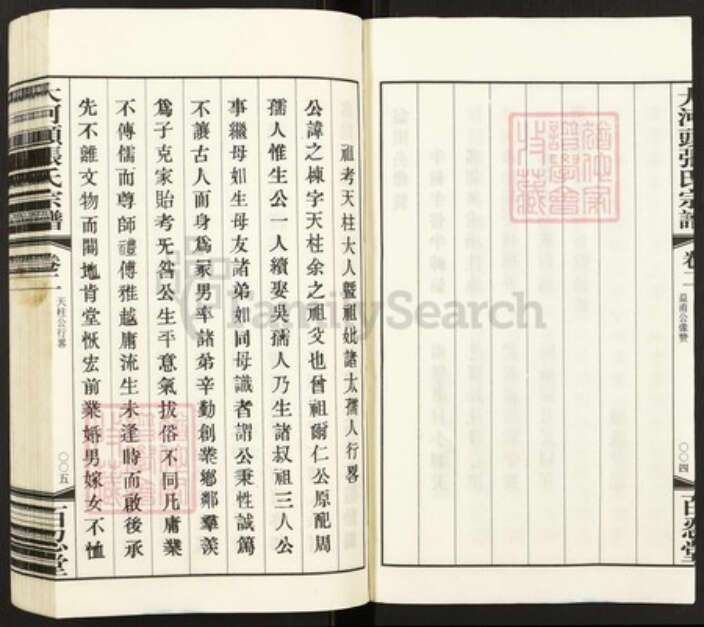 大河頭張氏宗譜
卷二
益甫公像贊
〇〇四
百忍堂
祖考天柱大人暨祖妣諸太孺人行畧
公諱之棟字天柱余之祖父也曾祖爾仁公原配周
孺人惟生公一人續娶吳孺人乃生諸叔祖三人公
事繼母如生母友諸弟如同母識者謂公秉性誠篤
不讓古人而身爲冢男率諸弟辛勤創業鄉鄰羣羨
爲子克家貽考旡咎公生平意氣拔俗不同凡庸業
不傳儒而尊師禮傅雅越庸流生未逢時而啟後承
先不離文物而闢地肯堂恢宏前業婚男嫁女不恤
大河頭張氏宗譜
卷二
天柱公行畧
〇〇五
百忍堂
FamilySearch